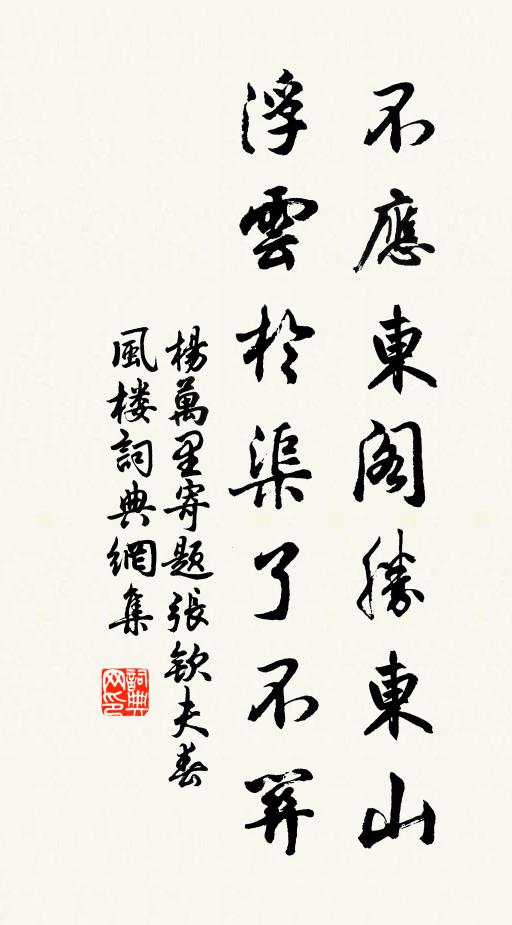 不應東閣勝東山
浮雲於渠了不關
楊萬里寄题張欽夫春
風楼詞典網集
詞典
网印